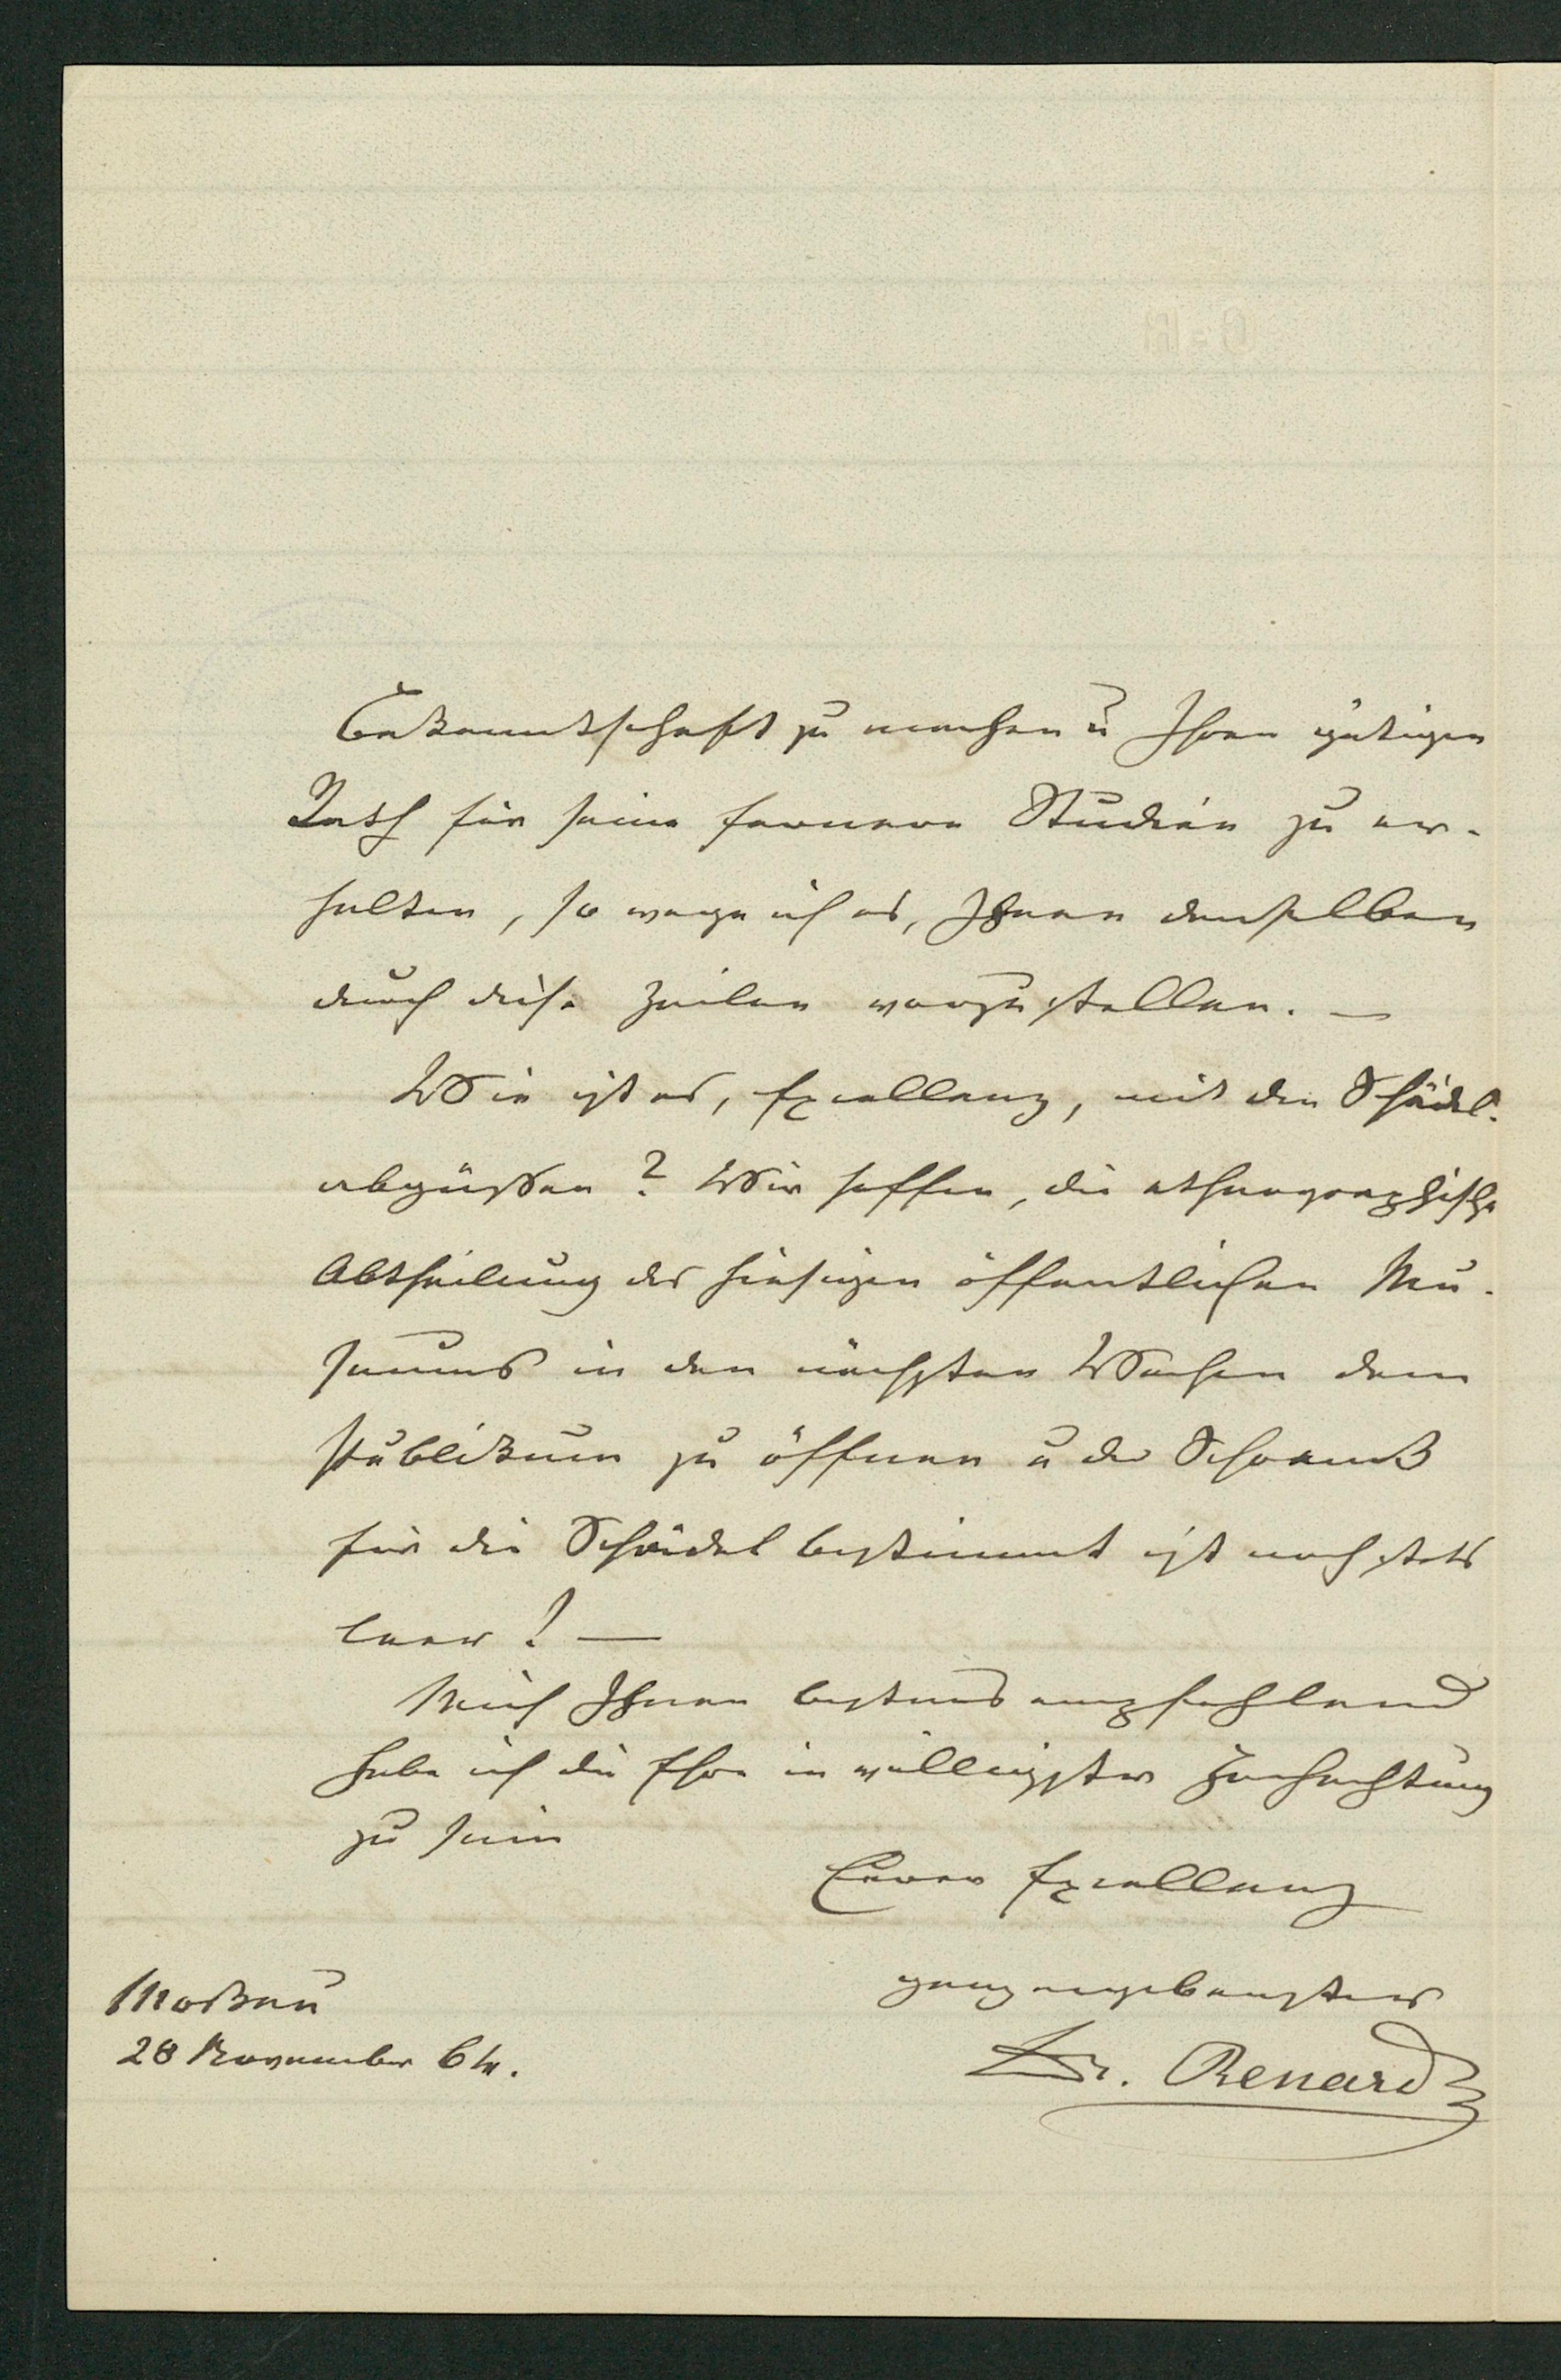 Bekanntschaft zu machen u Ihren gütigen
Rath für seine ferneren Studien zu er-
halten, so wage ich es, Ihnen denselben
durch diese Zeilen vorzustellen. —
Wie ist es, Excellenz, mit den Schädel-
abgüßen? Wir hoffen, die ethnographische
Abtheilung des hiesigen öffentlichen Mu-
seums in den nächsten Wochen dem
Publikum zu öffnen u der Schrank
für die Schädel bestimmt ist noch stets
leer! —
Mich Ihnen bestens empfehlend
habe ich die Ehre in völligster Hochachtung
zu sein
Eurer Excellenz
ganz ergebenster
Dr. Renard
Moskau
28 November 64.